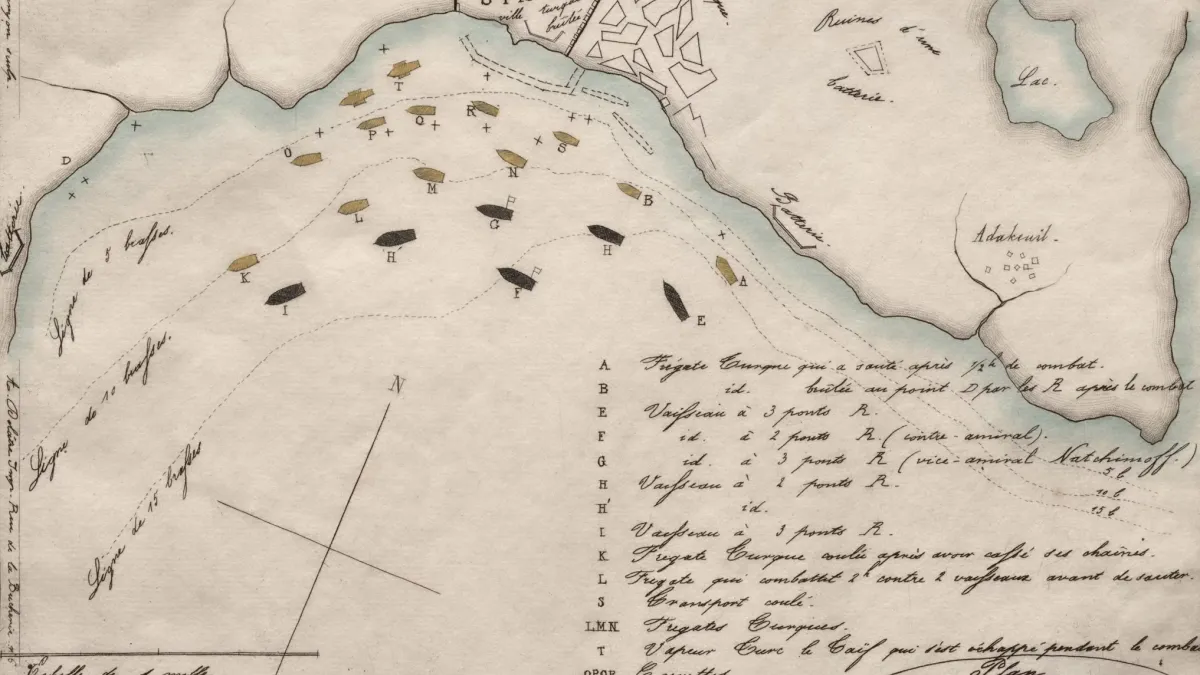 ville turque
brûlée
Ruines d'une
batterie.
Lac.
T
Q
R
P
O
S
D
N
M
B
L
G
Batterie.
H'
H
Adakeuil.
K
F
A
I
E
Ligne de 5 brasses.
Ligne de 10 brasses.
Ligne de 15 brasses
N
A Frégate Turque qui a sauté après 1/2 h de combat.
B id. brûlée au point D par les R après le combat
E Vaisseau à 3 ponts R.
F id. à 2 ponts R. (contre-amiral).
G id. à 3 ponts R (vice-amiral Natchimoff.)
H Vaisseau à 2 ponts R.
H' id.
I Vaisseau à 3 ponts R.
K Frégate Turque coulée après avoir cassé ses chaînes.
L Frégate qui combattet 2h contre 2 vaisseaux avant de sauter.
S Transport coulé.
LMN Frégates Turques.
T Vapeur Turc le Taïf qui s'est échappé pendant le combat
OPQR Corvettes
5 b
10 b
15 b
Echelle de 1 mille
Plan